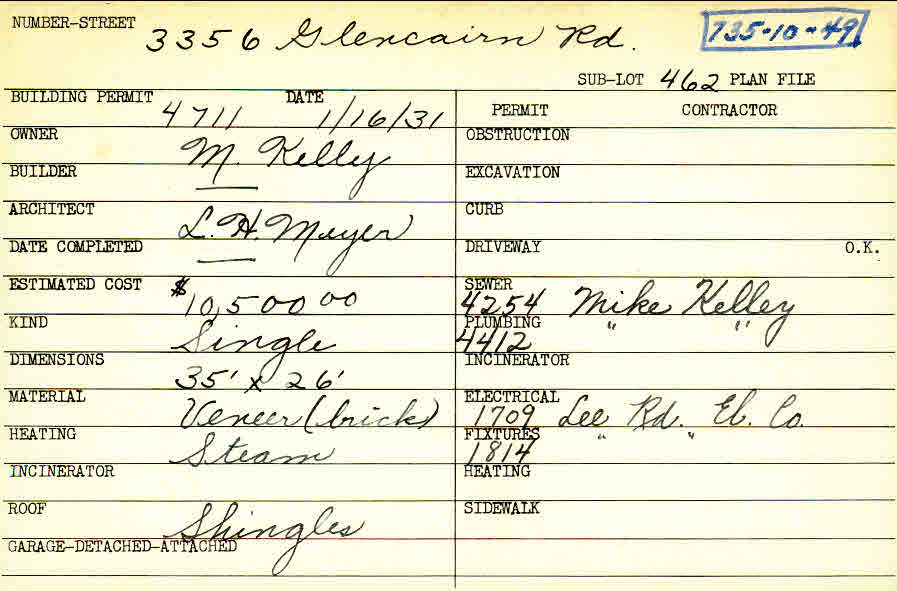 NUMBER-STREET 3356 Glencairn Rd. 735-10-49
SUB-LOT 462 PLAN FILE
BUILDING PERMIT 4711 DATE 1/16/31
PERMIT CONTRACTOR
OWNER M. Kelly
OBSTRUCTION
BUILDER —
EXCAVATION
ARCHITECT L. H. Meyer
CURB
DATE COMPLETED —
DRIVEWAY O.K.
ESTIMATED COST $10,500 00
SEWER 4254 Mike Kelley
KIND Single
PLUMBING 4412 " "
DIMENSIONS 35' x 26'
INCINERATOR
MATERIAL Veneer (brick)
ELECTRICAL 1709 Lee Rd. El. Co.
HEATING Steam
FIXTURES 1814 " "
INCINERATOR
HEATING
ROOF Shingles
SIDEWALK
GARAGE-DETACHED-ATTACHED